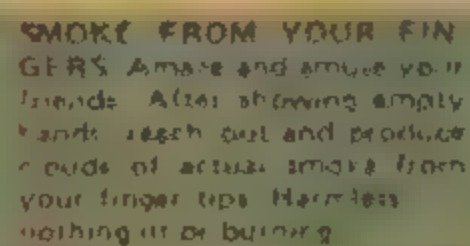 SMOKE FROM YOUR FIN
GERS Amaze and amuse your
friends After showing empty
hands reach out and produce
clouds of actual smoke from
your finger tips Harmless
nothing lit or burning